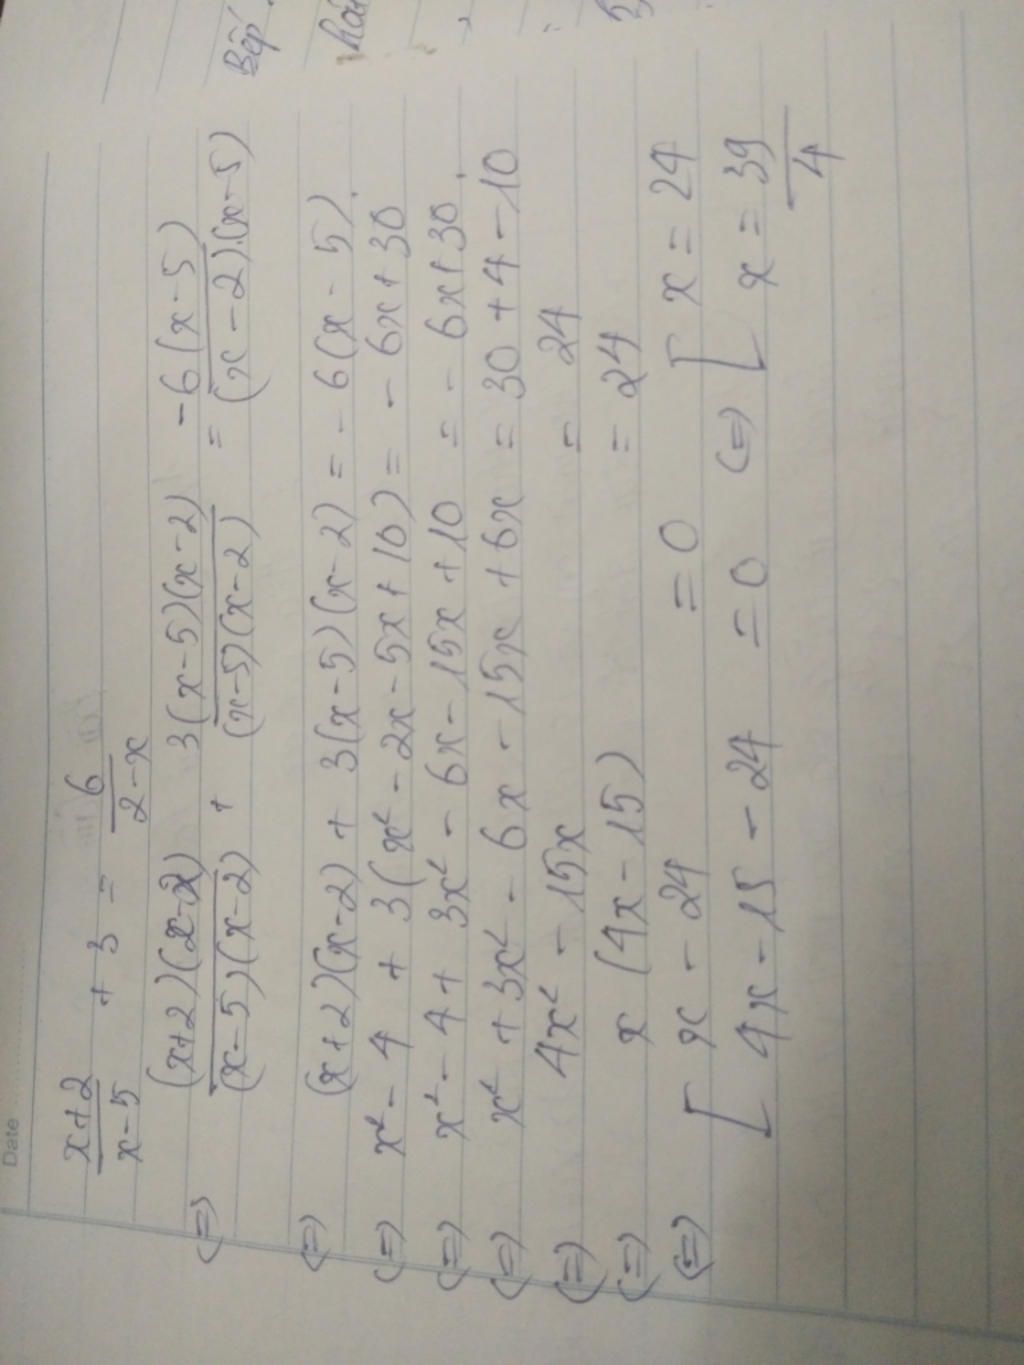 Date
x+2/x-5 + 3 = 6/2-x
(=) (x+2)(x-2)/(x-5)(x-2) + 3(x-5)(x-2)/(x-5)(x-2) = -6(x-5)/(x-2).(x-5)
(=) (x+2)(x-2) + 3(x-5)(x-2) = -6(x-5).
(=) x² - 4 + 3(x² - 2x - 5x + 10) = - 6x + 30
(=) x² - 4 + 3x² - 6x - 15x + 10 = - 6x + 30.
(=) x² + 3x² - 6x - 15x + 6x = 30 + 4 - 10
(=) 4x² - 15x = 24
(=) x (4x - 15) = 24
(=) [ x - 24 = 0 [ x = 24
[ 4x - 15 - 24 = 0 (=) [ x = 39/4
Bếp